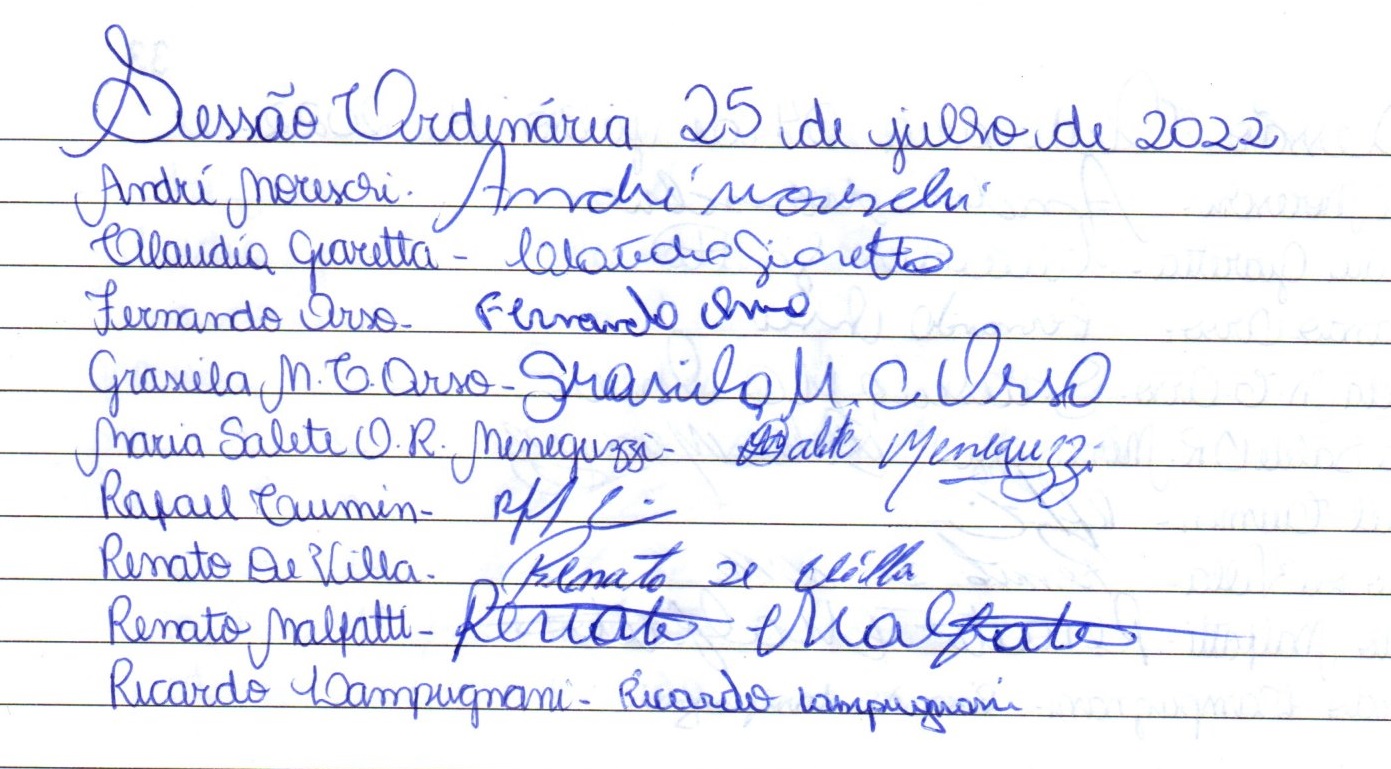 Sessão Ordinária 25 de julho de 2022
André Moreschi. André Moreschi
Claudia Giaretta - Claudia Giaretta
Fernando Orso - Fernando Orso
Grasiela M. C. Orso - Grasiela M. C. Orso
Maria Salete O. R. Meneguzzi - Salete Meneguzzi
Rafael -
Renato De Villa - Renato De Villa
Renato Malfatti - Renato Malfatti
Ricardo Lampugnani - Ricardo Lampugnani